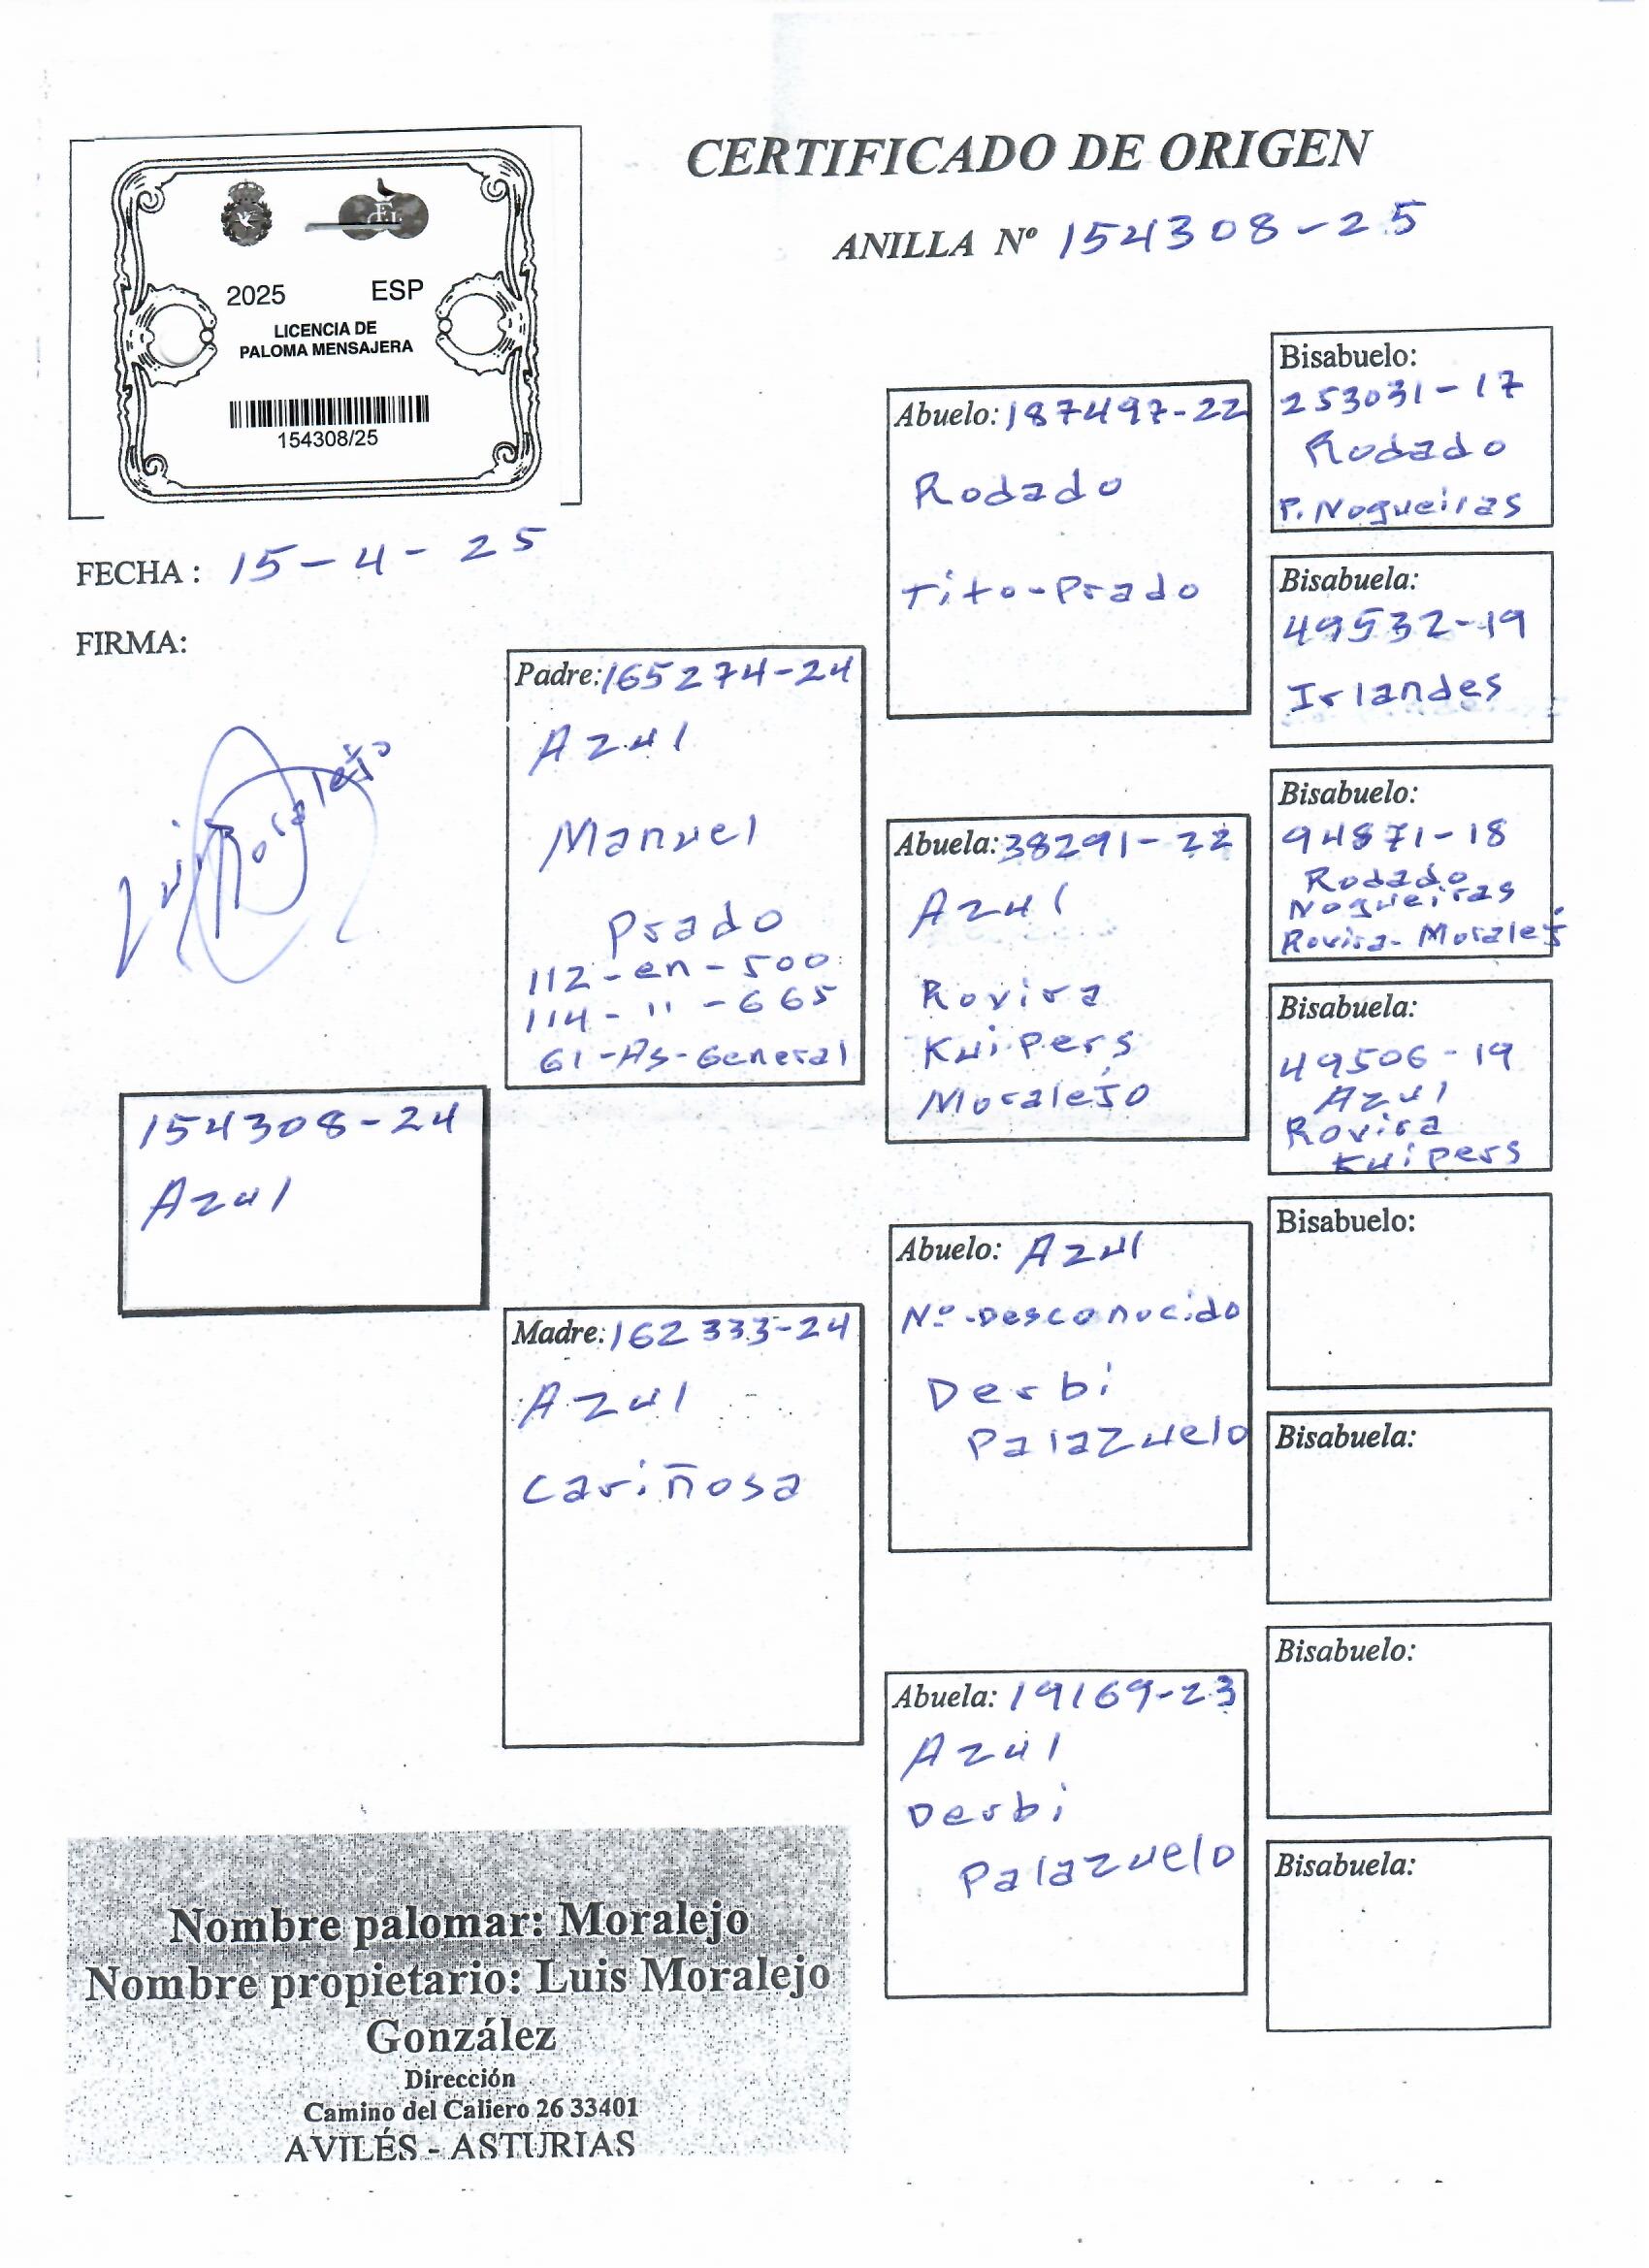 CERTIFICADO DE ORIGEN
ANILLA Nº 154308-25
2025 ESP
LICENCIA DE
PALOMA MENSAJERA
154308/25
FECHA: 15-4-25
FIRMA:
Luis Moralejo
154308-24
Azul
Padre: 165274-24
Azul
Manuel
Prado
112-en-500
114-"-665
61-As-General
Madre: 162333-24
Azul
Cariñosa
Abuelo: 187497-22
Rodado
Tito-Prado
Abuela: 38291-22
Azul
Rovira
Kuipers
Moralejo
Abuelo: Azul
Nº-Desconocido
Derbi
Palazuelo
Abuela: 19169-23
Azul
Derbi
Palazuelo
Bisabuelo:
253031-17
Rodado
P. Nogueiras
Bisabuela:
49532-19
Irlandes
Bisabuelo:
94871-18
Rodado
Nogueiras
Rovira-Moralej
Bisabuela:
49506-19
Azul
Rovira
Kuipers
Bisabuelo:
Bisabuela:
Bisabuelo:
Bisabuela:
Nombre palomar: Moralejo
Nombre propietario: Luis Moralejo
González
Dirección
Camino del Caliero 26 33401
AVILÉS - ASTURIAS